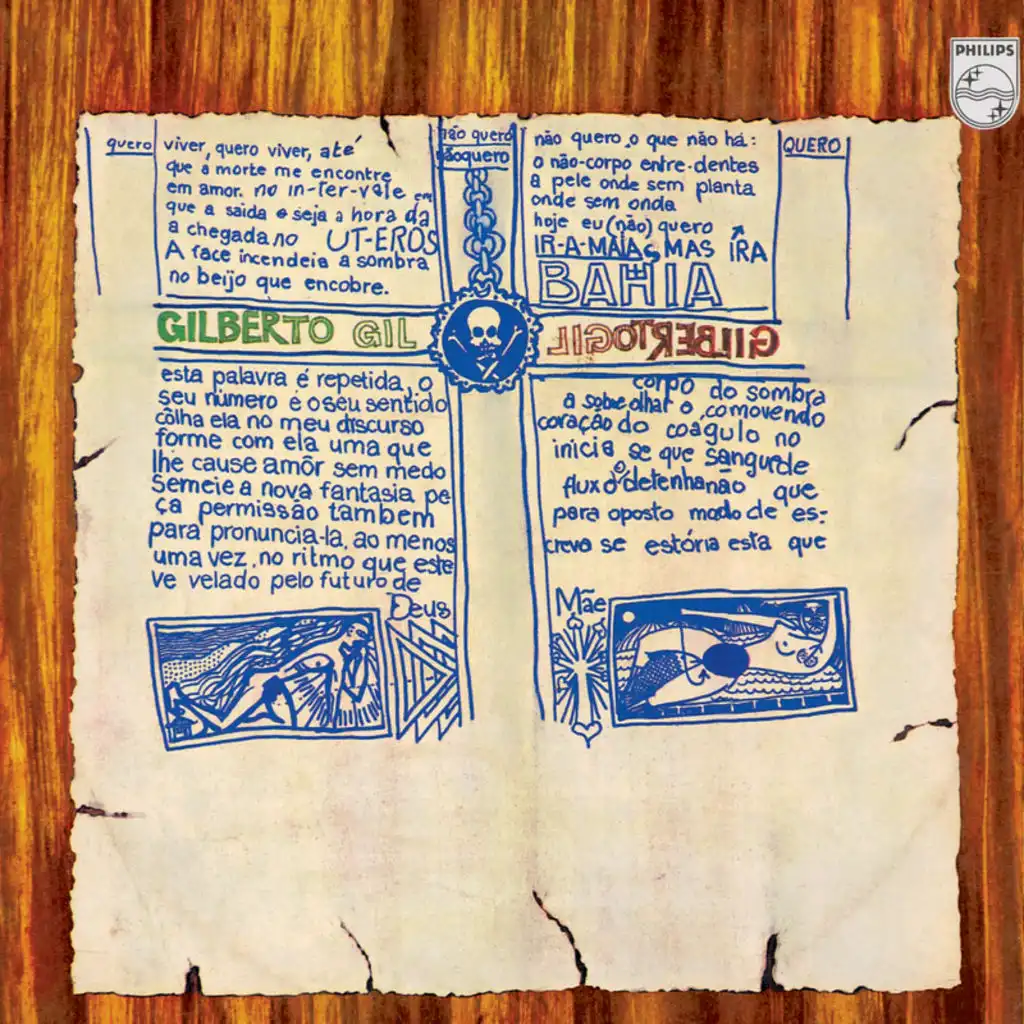 PHILIPS
quero
viver, quero viver, até
que a morte me encontre
em amor. no in-ter-vale em
que a saida e seja a hora da
a chegada no UT-EROS
A face incendeia a sombra
no beijo que encobre.
não quero
nãoquero
não quero o que não há:
o não-corpo entre-dentes
a pele onde sem planta
onde sem onda
hoje eu (não) quero
IR-A-MAIAS MAS IRA
BAHIA
QUERO
GILBERTO GIL
GILBERTO GIL
esta palavra é repetida, o
seu número é o seu sentido
côlha ela no meu discurso
forme com ela uma que
lhe cause amôr sem medo
Semeie a nova fantasia pe
ça permissão tambem
para pronuncia-la, ao menos
uma vez, no ritmo que este
ve velado pelo futuro de
Deus
corpo do sombra
a sobre olhar o comovendo
coração do coagulo no
inicia se que sangurde
fluxo o detenha não que
para oposto modo de es-
creva se estória esta que
Mãe